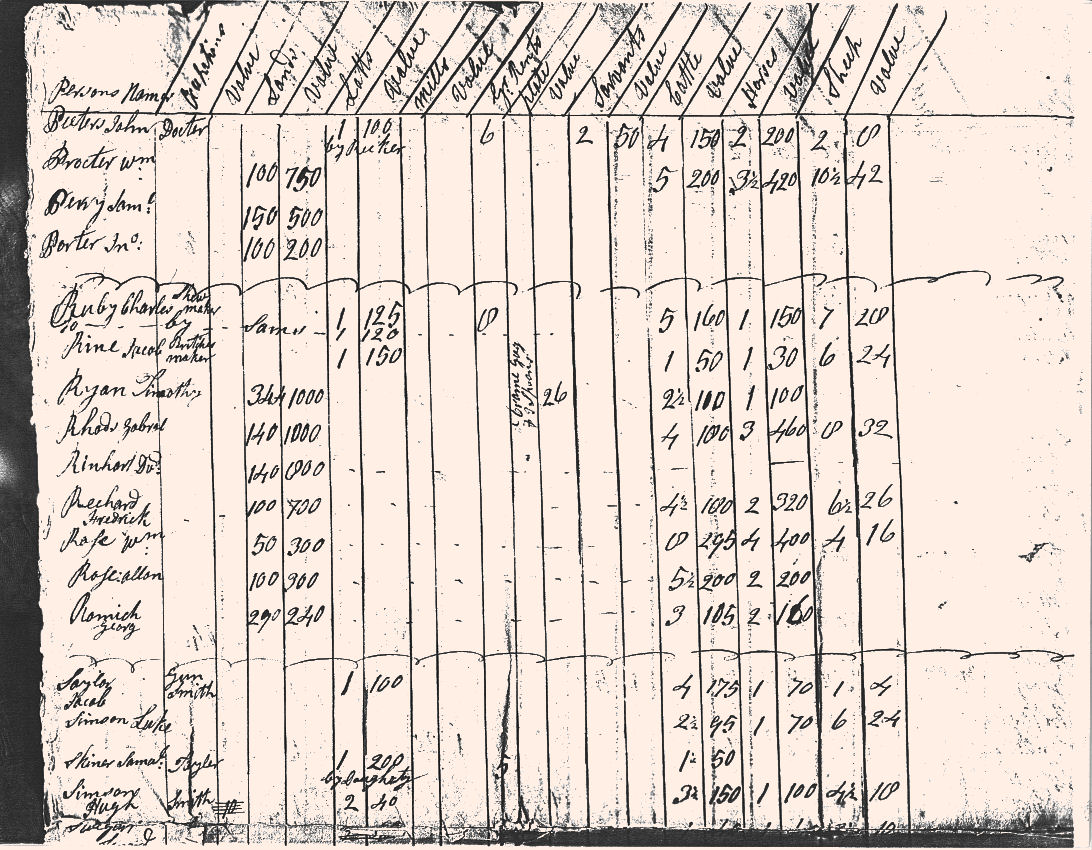 Persons Names Value Lands Value Lotts Value Mills Value Gr. Rents plate Value Servants Value Cattle Value Horses Value Sheep Value
Peeters John Docter 1 100 6 2 50 4 150 2 200 2 8
by Recker
Procter Wm 100 750 5 200 3½ 420 10½ 42
Perry Saml 150 500
Porter Jno: 100 200
Ruby Charles Shew maker 1 125 8 5 160 1 150 7 28
Do by Same 1 120
Rine Jacob maker 1 150 1 50 1 30 6 24
Ryan Timothy 344 1000 26 2½ 100 1 100
Rhods Gabriel 140 1000 4 180 3 460 8 32
Rinhart Dd 140 800
Rechard 100 700 4½ 180 2 320 6½ 26
Fredrick
Rose Wm 50 300 8 295 4 400 4 16
Rose allan 100 300 5½ 200 2 200
Romich 290 240 3 105 2 160
Georg
Saylor Gun Smith 1 100 4 175 1 70 1 4
Jacob
Simson Luke 2½ 95 1 70 6 24
Skiner Samal: Tayler 1 200 5 1½ 50
by Daugherty
Simson Smith 2 40 3½ 150 1 100 4½ 18
Hugh